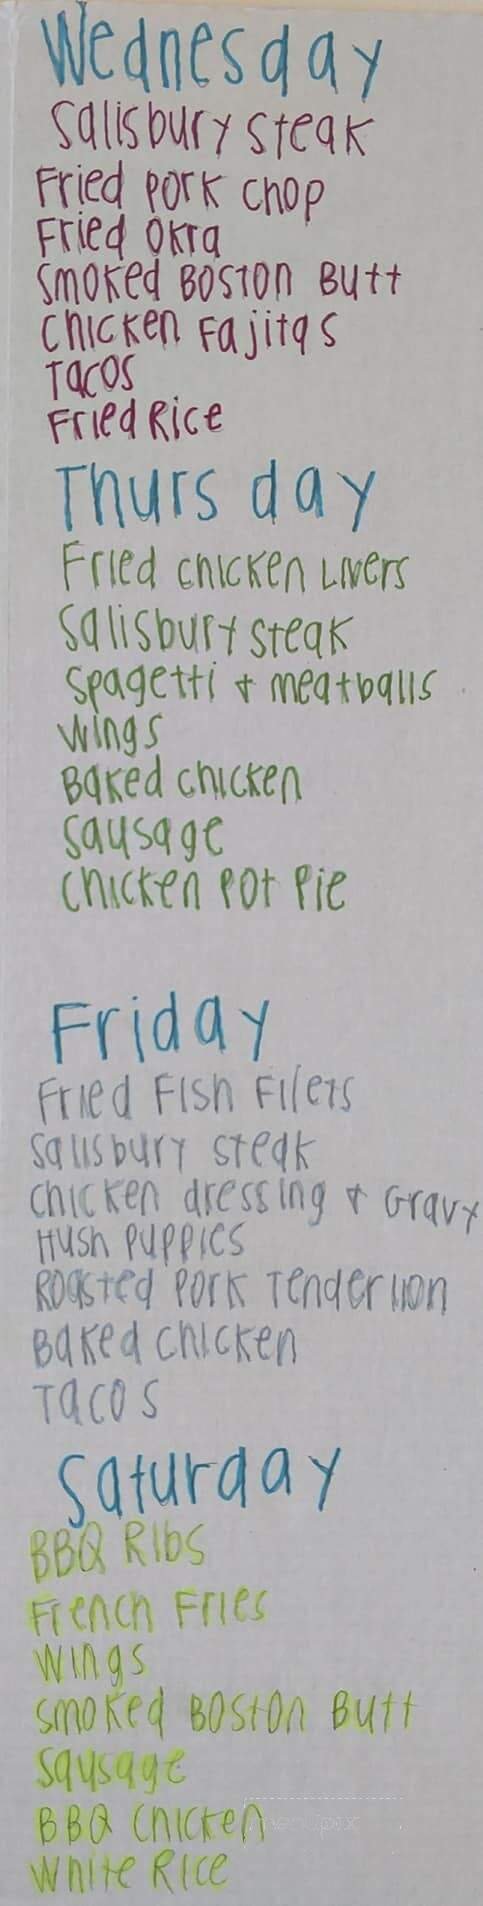 Wednesday
Salisbury Steak
Fried Pork Chop
Fried Okra
Smoked Boston Butt
Chicken Fajitas
Tacos
Fried Rice
Thursday
Fried Chicken Livers
Salisbury Steak
Spagetti & meatballs
Wings
Baked Chicken
Sausage
Chicken Pot Pie
Friday
Fried Fish Filets
Salisbury Steak
Chicken dressing & Gravy
Hush Puppies
Roasted Pork Tenderlion
Baked Chicken
Tacos
Saturday
BBQ Ribs
French Fries
Wings
Smoked Boston Butt
Sausage
BBQ Chicken
menupix
White Rice